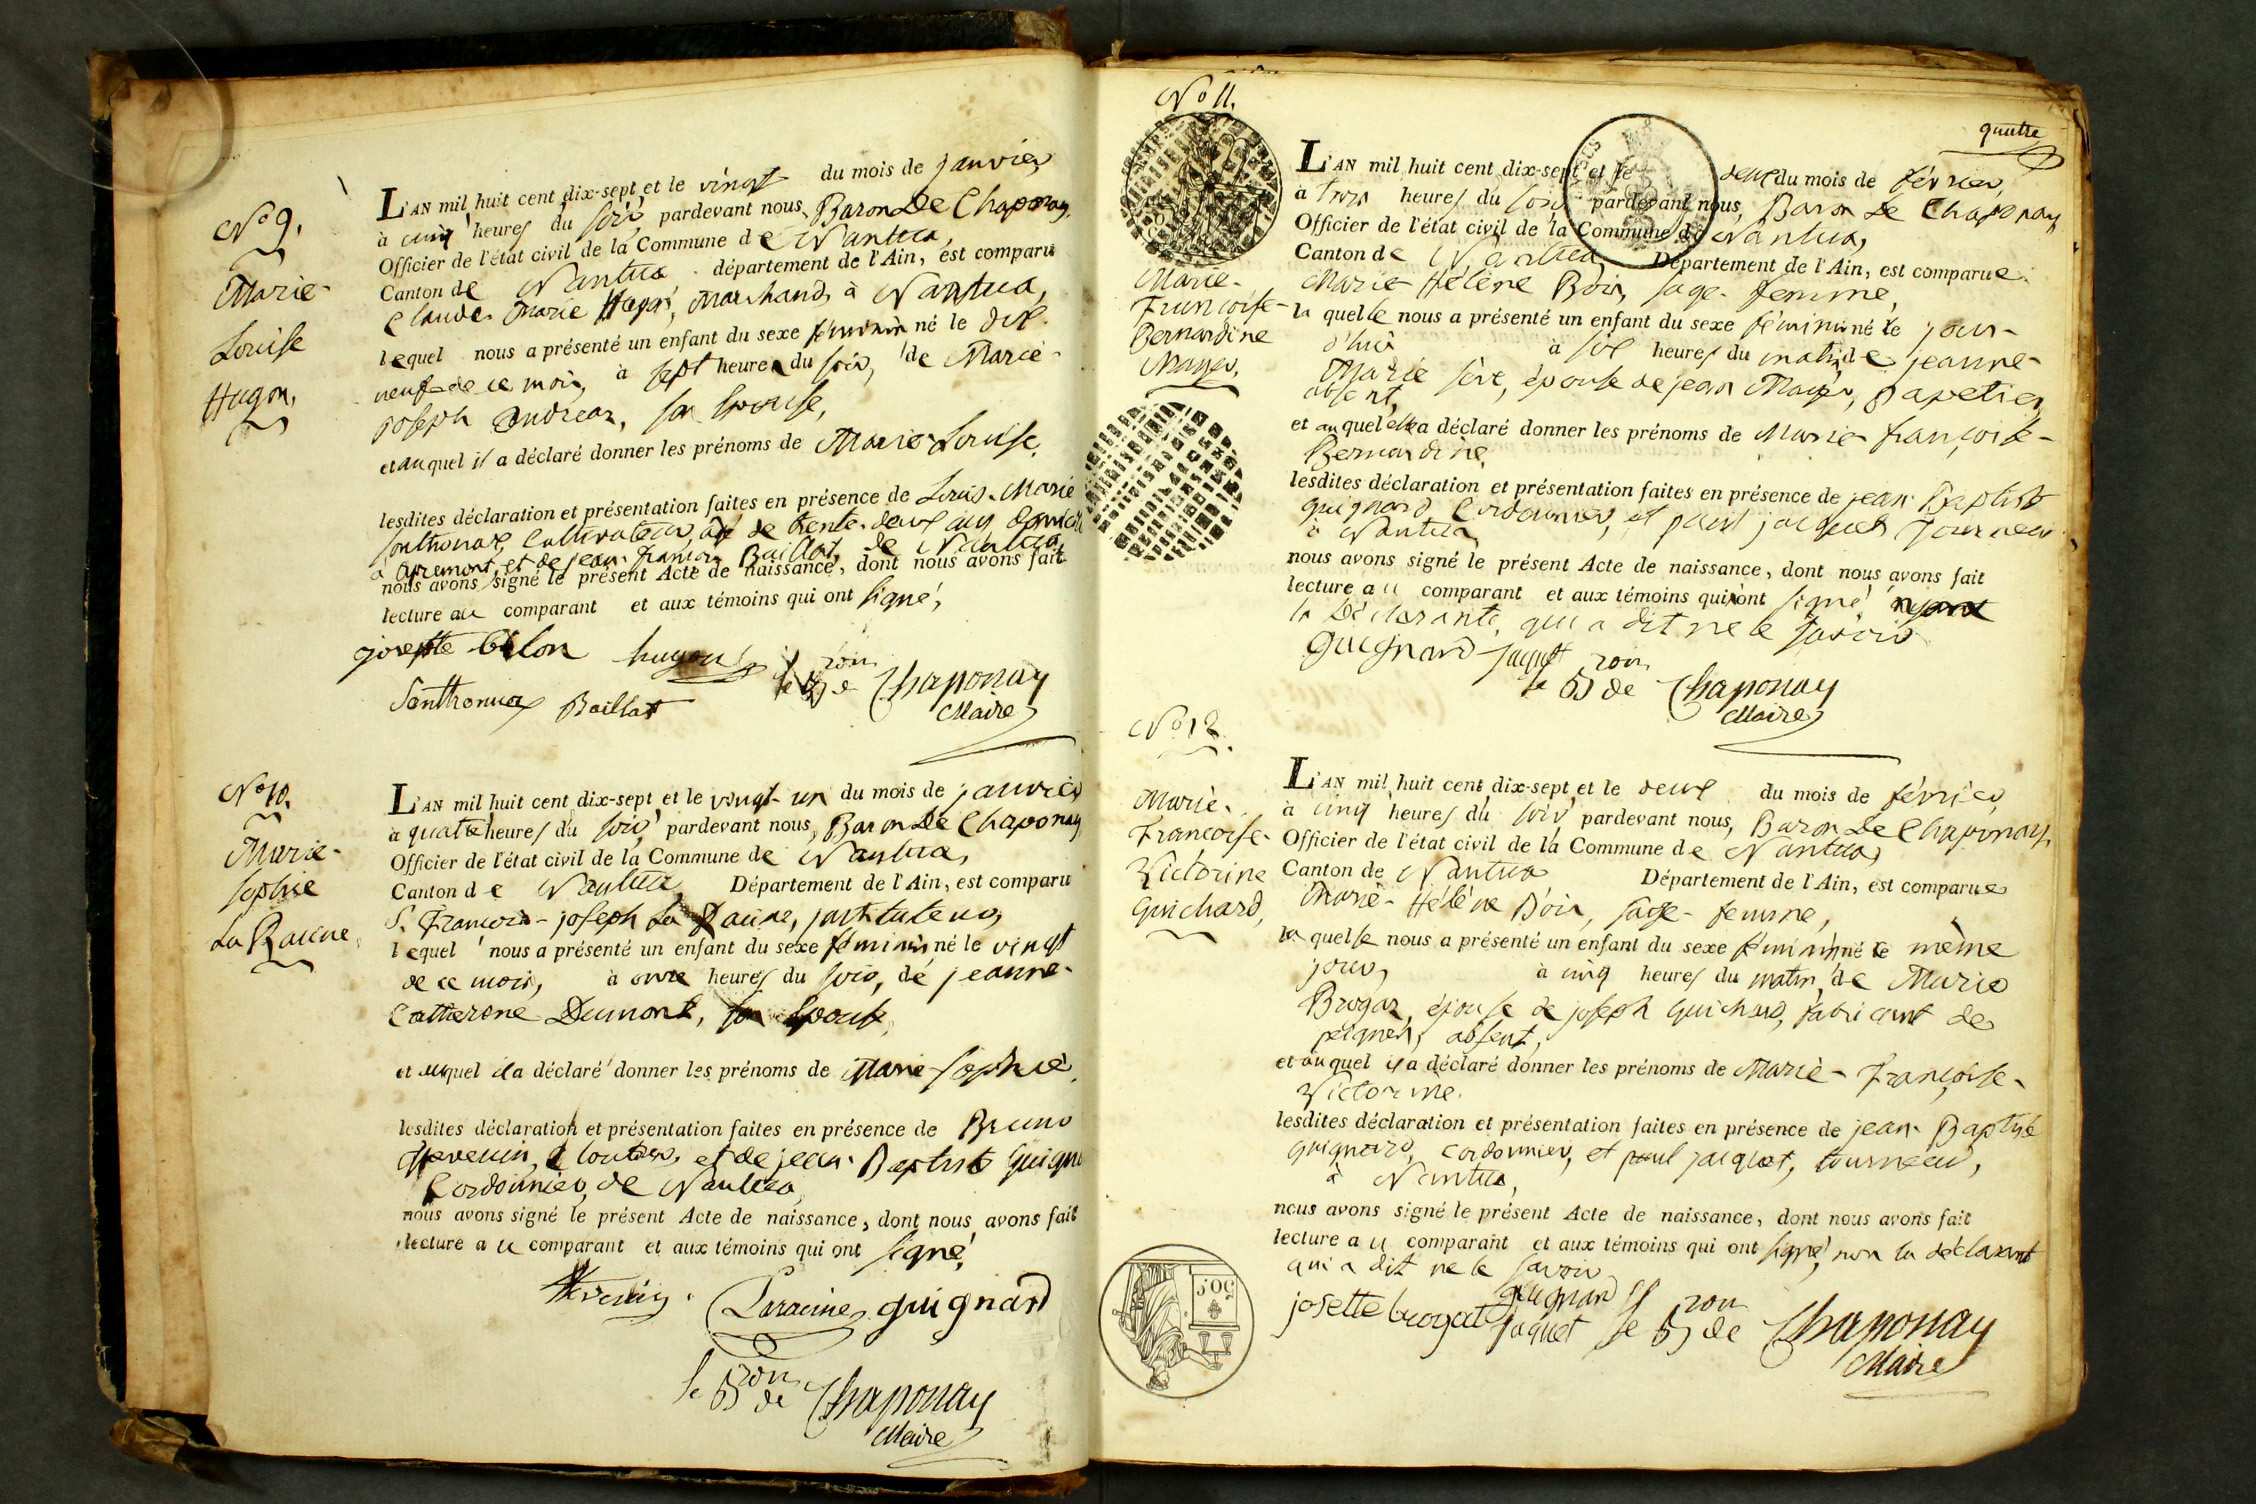 N° 9.
Marie-
Louise
Hugon,
L'AN mil huit cent dix-sept et le vingt du mois de janvier,
à cinq heures du soir pardevant nous, Baron De Chaponay,
Officier de l'état civil de la Commune de Nantua,
Canton de Nantua département de l'Ain, est comparu
Claude Marie Hugon, Marchand à Nantua,
lequel nous a présenté un enfant du sexe féminin né le dix-
neuf de ce mois, à sept heures du soir, de Marie-
Joseph son Epouse,
et auquel il a déclaré donner les prénoms de Marie Louise,
lesdites déclaration et présentation faites en présence de Louis-Marie
Sonthonax, Cultivateur, âgé de trente-deux ans
à Apremont, et de jean-françois Baillat, de Nantua,
nous avons signé le présent Acte de naissance, dont nous avons fait
lecture au comparant et aux témoins qui ont signé,
hugon
Sonthonax Baillat le Bron de Chaponay
Maire
N° 10.
Marie-
Sophie
La Racine,
L'AN mil huit cent dix-sept et le vingt-un du mois de janvier
à quatre heures du soir pardevant nous, Baron De Chaponay
Officier de l'état civil de la Commune de Nantua,
Canton de Nantua Département de l'Ain, est comparu
S. François-joseph La Racine, instituteur,
lequel nous a présenté un enfant du sexe féminin né le vingt
de ce mois, à onze heures du soir, de jeanne-
Catherine Dumont, son Epouse,
et auquel il a déclaré donner les prénoms de Marie Sophie,
lesdites déclaration et présentation faites en présence de Bruno
Thevenin, Cloutier, et de jean-Baptiste Guigna
Cordonnier, de Nantua,
nous avons signé le présent Acte de naissance, dont nous avons fait
lecture au comparant et aux témoins qui ont signé,
Thevenin. Laracine guignard
le Bron de Chaponay
Maire
quatre
N° 11.
Marie-
Françoise-
Bernardine
Mayer,
L'AN mil huit cent dix-sept et le deux du mois de février,
à trois heures du soir pardevant nous, Baron De Chaponay
Officier de l'état civil de la Commune de Nantua,
Canton de Nantua Département de l'Ain, est comparue
Marie Hélène Boir, sage-femme,
laquelle nous a présenté un enfant du sexe féminin né le jour-
d'hui à six heures du matin, de jeanne-
Marie épouse de jean Mayer, papetier,
absent,
et auquel elle a déclaré donner les prénoms de Marie françoise-
Bernardine,
lesdites déclaration et présentation faites en présence de jean-Baptiste
guignard Cordonnier, et paul jacquet Tourneur
à Nantua
nous avons signé le présent Acte de naissance, dont nous avons fait
lecture au comparant et aux témoins qui ont signé,
la Déclarante, qui a dit ne le savoir
guignard jaquet le Bron de Chaponay
Maire
N° 12.
Marie-
Françoise-
Victorine
Guichard,
L'AN mil huit cent dix-sept et le deux du mois de février,
à cinq heures du soir pardevant nous, Baron De Chaponay,
Officier de l'état civil de la Commune de Nantua,
Canton de Nantua Département de l'Ain, est comparue
Marie-Hélène Boir, sage-femme,
laquelle nous a présenté un enfant du sexe féminin né le même
jour, à cinq heures du matin, de Marie
Brogat, épouse de joseph Guichard, fabricant de
peignes, absent,
et auquel il a déclaré donner les prénoms de Marie-Françoise-
Victorine.
lesdites déclaration et présentation faites en présence de jean-Baptiste
guignard, cordonnier, et paul jacquet, tourneur,
à Nantua,
nous avons signé le présent Acte de naissance, dont nous avons fait
lecture au comparant et aux témoins qui ont signé, non la déclarant
qui a dit ne le savoir
josette brogat guignard
jaquet le Bron de Chaponay
Maire
50C